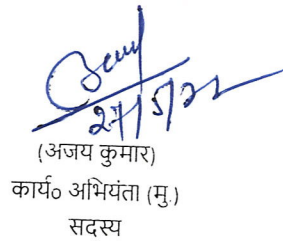 27/5/22
(अजय कुमार)
कार्य० अभियंता (मु.)
सदस्य